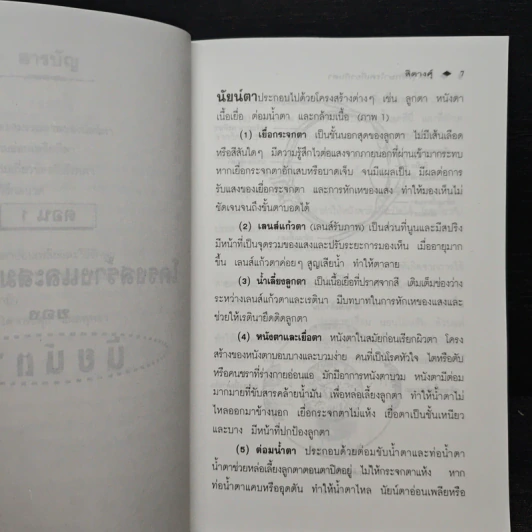 ติดวงศุ์ ◆ 3
นัยน์ตาประกอบไปด้วยโครงสร้างต่างๆ เช่น ลูกตา หนังตา
เนื้อเยื่อ ต่อมน้ำตา และกล้ามเนื้อ (ภาพ 1)
(1) เยื่อกระจกตา เป็นชั้นนอกสุดของลูกตา ไม่มีเส้นเลือด
หรือสีสันใดๆ มีความรู้สึกไวต่อแสงจากภายนอกที่ผ่านเข้ามากระทบ
หากเยื่อกระจกตาอักเสบหรือบาดเจ็บ จนมีแผลเป็น มีผลต่อการ
รับแสงของเยื่อกระจกตา และการหักเหของแสง ทำให้มองเห็นไม่
ชัดเจนจนถึงขั้นตาบอดได้
(2) เลนส์แก้วตา (เลนส์รับภาพ) เป็นส่วนที่นูนและมีสปริง
มีหน้าที่เป็นจุดรวมของแสงและปรับระยะการมองเห็น เมื่ออายุมาก
ขึ้น เลนส์แก้วตาค่อยๆ สูญเสียน้ำ ทำให้ตาลาย
(3) น้ำเลี้ยงลูกตา เป็นเนื้อเยื่อที่ปราศจากสี เติมเต็มช่องว่าง
ระหว่างเลนส์แก้วตาและเรตินา มีบทบาทในการหักเหของแสงและ
ช่วยให้เรตินายึดติดลูกตา
(4) หนังตาและเยื่อตา หนังตาในสมัยก่อนเรียกผิวตา โครง
สร้างของหนังตาบอบบางและบวมง่าย คนที่เป็นโรคหัวใจ ไตหรือตับ
หรือคนชราที่ร่างกายอ่อนแอ มักมีอาการหนังตาบวม หนังตามีต่อม
มากมายที่ขับสารคล้ายน้ำมัน เพื่อหล่อเลี้ยงลูกตา ทำให้น้ำตาไม่
ไหลออกมาข้างนอก เยื่อกระจกตาไม่แห้ง เยื่อตาเป็นชั้นเหนียว
และบาง มีหน้าที่ปกป้องลูกตา
(5) ต่อมน้ำตา ประกอบด้วยต่อมขับน้ำตาและท่อน้ำตา
น้ำตาช่วยหล่อเลี้ยงลูกตาตอนตาปิดอยู่ ไม่ให้กระจกตาแห้ง หาก
ท่อน้ำตาแคบหรืออุดตัน ทำให้น้ำตาไหล นัยน์ตาอ่อนเพลียหรือ